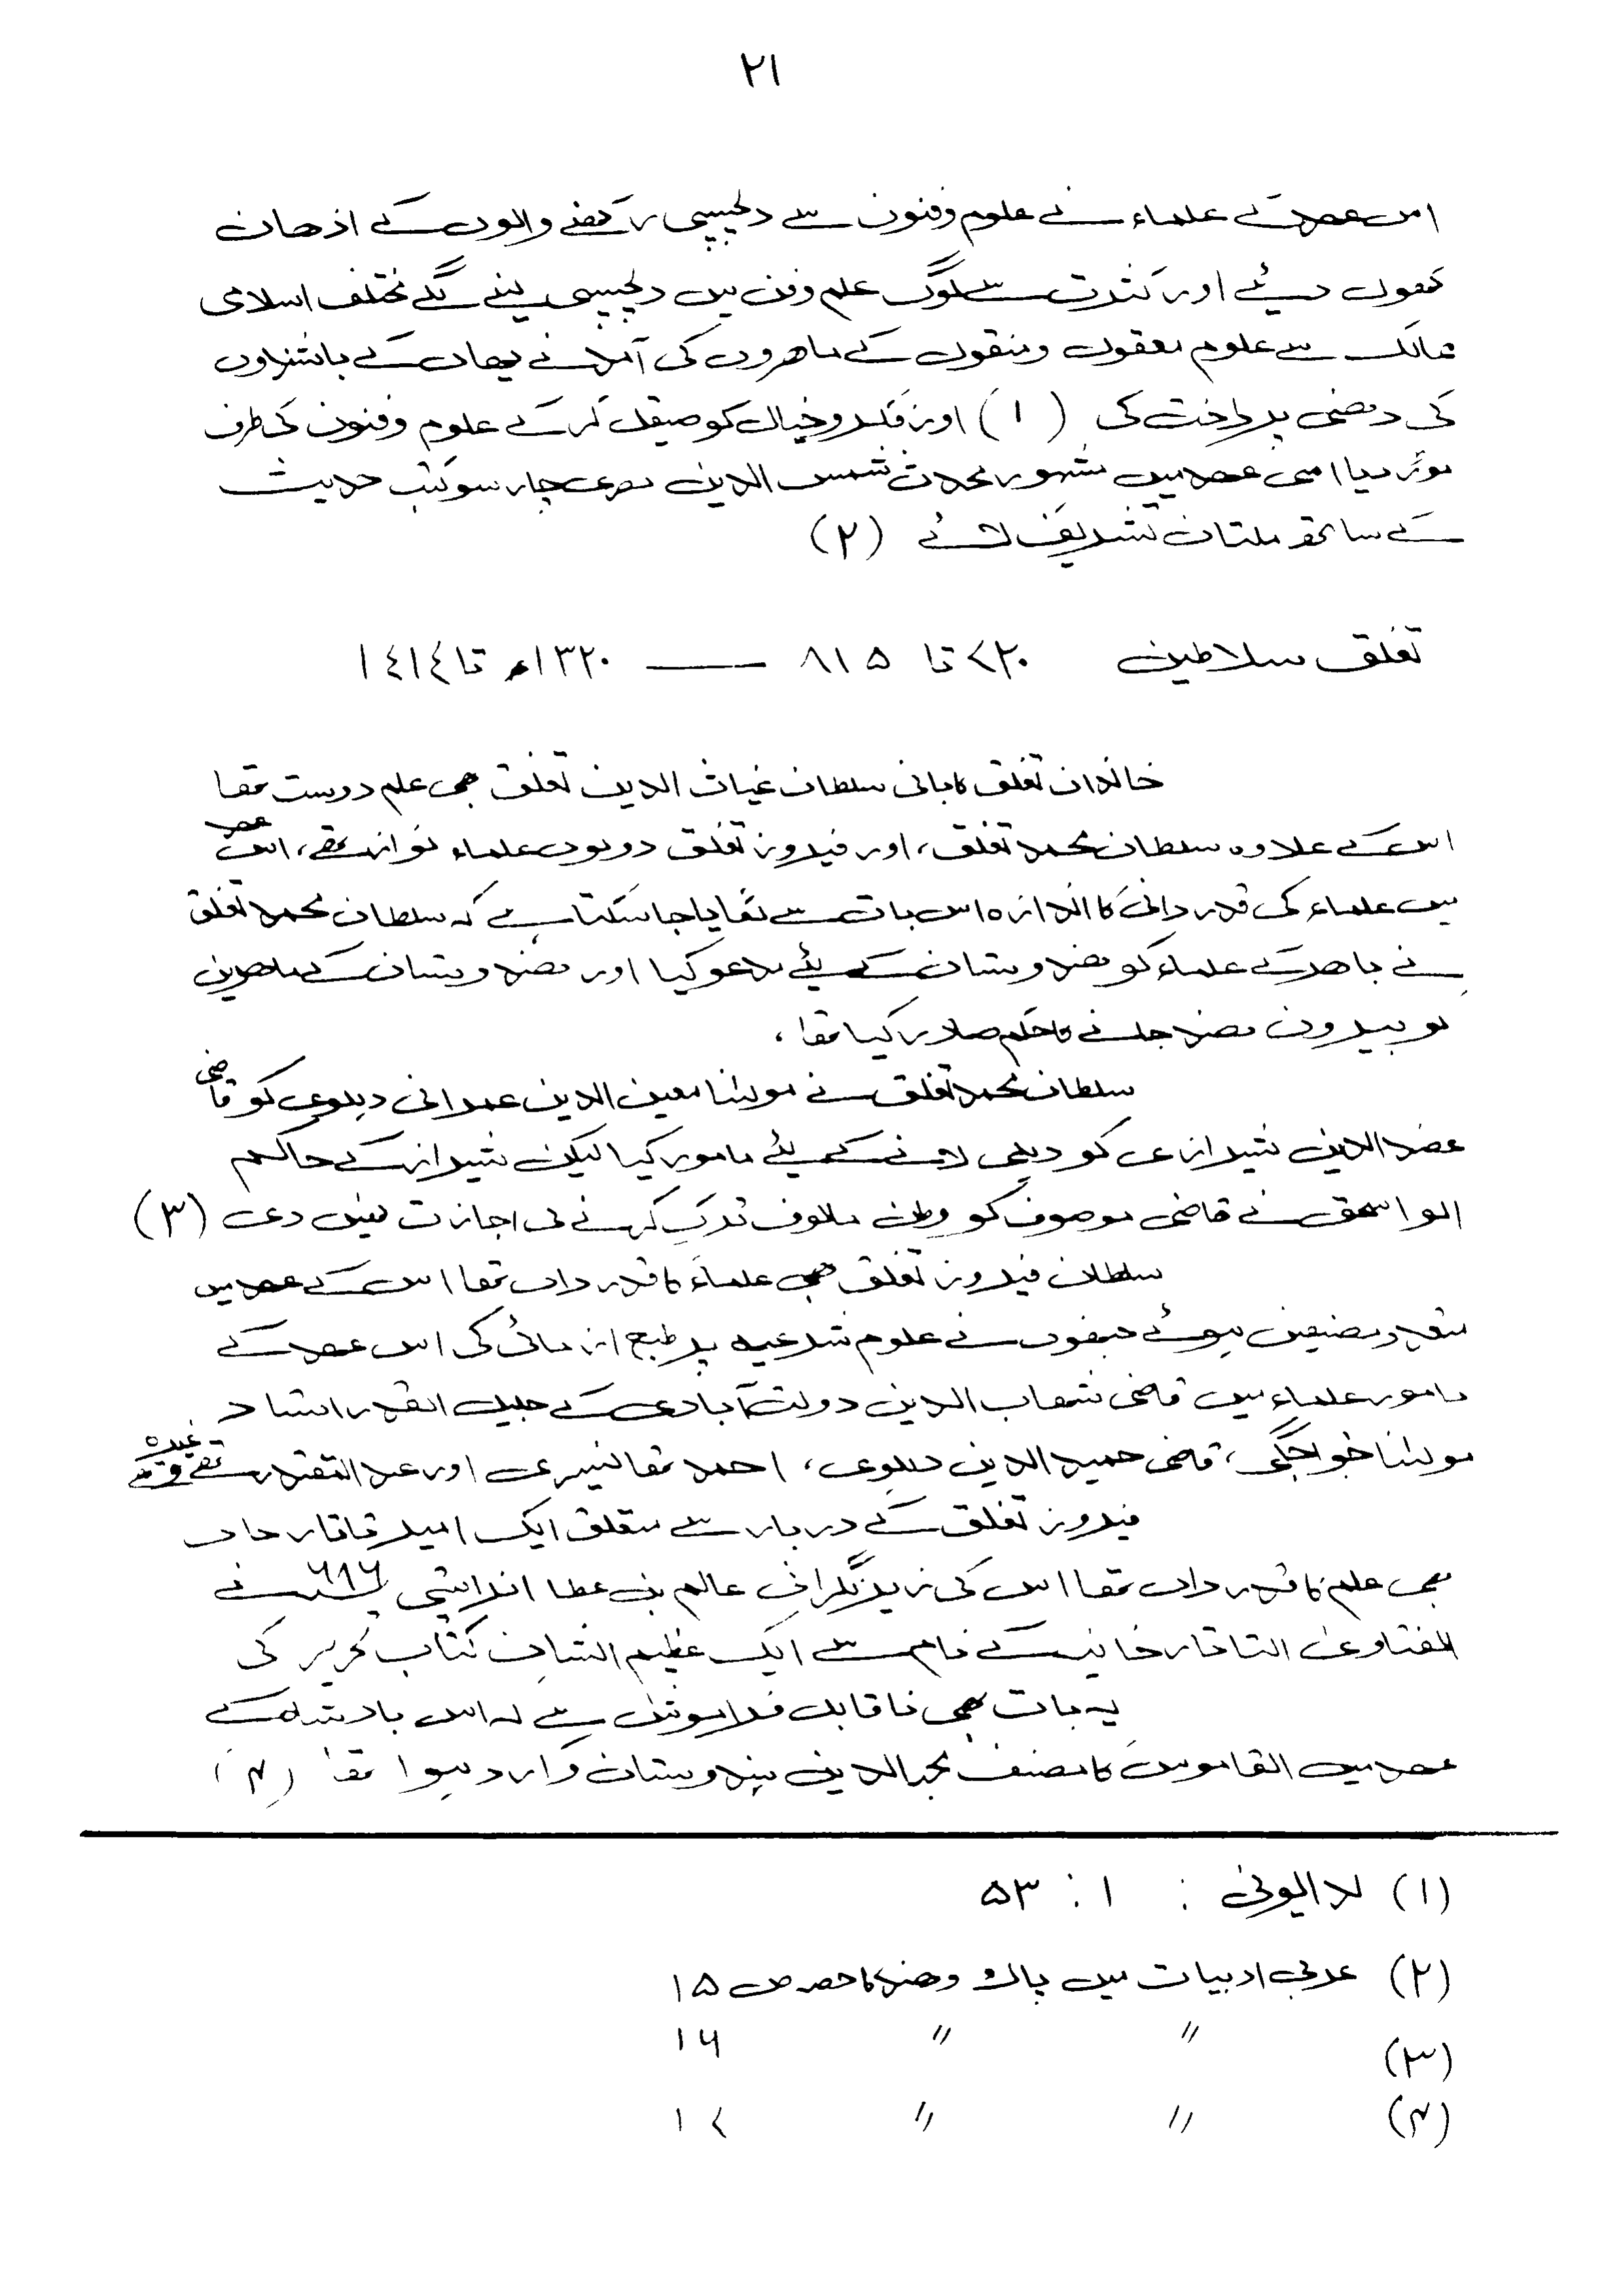 ۲۱
اس عھد کے علماء نے علوم و فنون سے دلچسپی رکھنے والوں کے اذھان
کھول دیئے اور کثرت سے لوگ علم و فن میں دلچسپی لینے لگے مختلف اسلامی
ممالک سے علوم معقول و منقول کے ماھروں کی آمد نے یھاں کے باشندوں
کی ذھنی پرداخت کی (۱) اور فکر و خیال کو صیقل کر کے علوم و فنون کی طرف
موڑ دیا اسی عھد میں مشہور محدث شمس الدین مصری چار سو کتب حدیث
کے ساتھ ملتان تشریف لائے (۲)
تغلق سلاطین ۷۲۰ تا ۸۱۵ — ۱۳۲۰ء تا ۱٤۱٤
خاندان تغلق کا بانی سلطان غیاث الدین تغلق بھی علم دوست تھا
اس کے علاوہ سلطان محمد تغلق، اور فیروز تغلق دونوں علماء نواز تھے، اس عھد
میں علماء کی قدردانی کا اندازہ اس بات سے لگایا جا سکتا ہے کہ سلطان محمد تغلق
نے باھر کے علماء کو ھندوستان کے لئے مدعو کیا اور ھندوستان کے ماھرین
کو بیرون ھند جانے کا حکم صادر کیا تھا،
سلطان محمد تغلق نے مولانا معین الدین عمرانی دہلوی کو قاضی
عضد الدین شیرازی کو دہلی لانے کے لئے مامور کیا لیکن شیراز کے حاکم
ابو اسحق نے قاضی موصوف کو وطن مالوف ترک کرنے کی اجازت نہیں دی (۳)
سلطان فیروز تغلق بھی علماء کا قدر داں تھا اس کے عھد میں
متعدد مصنفین ہوئے جنھوں نے علوم شرعیہ پر طبع ازمائی کی اس عھد کے
نامور علماء میں قاضی شھاب الدین دولت آبادی کے جلیل القدر استاد
مولانا خواجگی، قاضی حمید الدین دہلوی، احمد تھانیسری اور عبد المقتدر وغیرہ تھے
فیروز تغلق کے دربار سے متعلق ایک امیر تاتار خاں
بھی علم کا قدر داں تھا اس کی زیر نگرانی عالم بن عطا اندرپتی نے
الفتاوی التاتارخانیہ کے نام سے ایک عظیم الشان کتاب تحریر کی
یہ بات بھی ناقابل فراموش ہے کہ اس بادشاہ کے
عھد میں القاموس کا مصنف مجد الدین ہندوستان وارد ہوا تھا (۴)
(۱) بدایونی : ۱ : ۵۳
(۲) عربی ادبیات میں پاک و ھند کا حصہ ص ۱۵
(۳) " " ۱۶
(۴) " " ۱۷